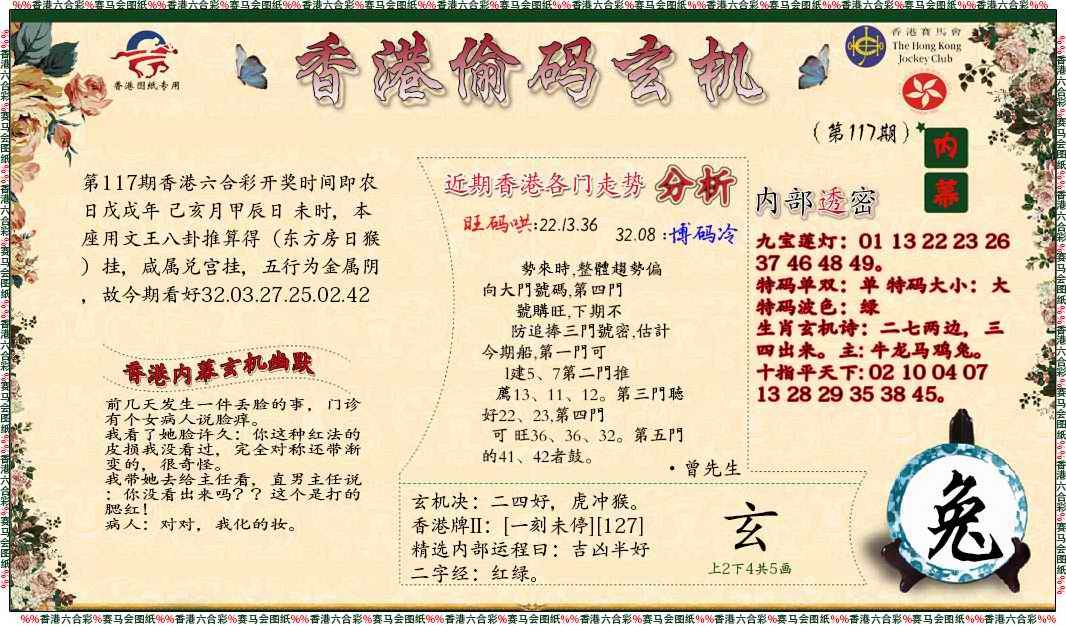 %%香港六合彩%赛马会图纸%%香港六合彩%赛马会图纸%%香港六合彩%赛马会图纸%%香港六合彩%赛马会图纸%%香港六合彩%赛马会图纸%%香港六合彩%赛马会图纸%%香港六合彩%赛马会图纸%%香港六合彩%%
香港图纸专用
香港偷码玄机
香港賽馬會
The Hong Kong
Jockey Club
(第117期)
内
幕
第117期香港六合彩开奖时间即农
日戊戌年 己亥月甲辰日 未时，本
座用文王八卦推算得（东方房日猴
）挂，咸属兑宫挂，五行为金属阴
，故今期看好32.03.27.25.02.42
香港内幕玄机幽默
前几天发生一件丢脸的事，门诊
有个女病人说脸痒。
我看了她脸许久：你这种红法的
皮损我没看过，完全对称还带渐
变的，很奇怪。
我带她去给主任看，直男主任说
：你没看出来吗？？这个是打的
腮红！
病人：对对，我化的妆。
近期香港各门走势 分析
旺码哄:22.13.36
32.08 :博码冷
勢來時,整體趨勢偏
向大門號碼,第四門
號購旺,下期不
防追捧三門號密,估計
今期船,第一門可
1建5、7第二門推
薦13、11、12。第三門聴
好22、23,第四門
可 旺36、36、32。第五門
的41、42者鼓。
·曾先生
玄机决：二四好，虎冲猴。
香港牌II：[一刻未停][127]
精选内部运程曰：吉凶半好
二字经：红绿。
玄
上2下4共5画
内部透密
九宝莲灯：01 13 22 23 26
37 46 48 49。
特码单双：单 特码大小：大
特码波色：绿
生肖玄机诗：二七两边，三
四出来。主：牛龙马鸡兔。
十指平天下: 02 10 04 07
13 28 29 35 38 45。
兔
%%香港六合彩%赛马会图纸%%香港六合彩%赛马会图纸%%香港六合彩%赛马会图纸%%香港六合彩%赛马会图纸%%香港六合彩%赛马会图纸%%香港六合彩%赛马会图纸%%香港六合彩%赛马会图纸%%香港六合彩%%